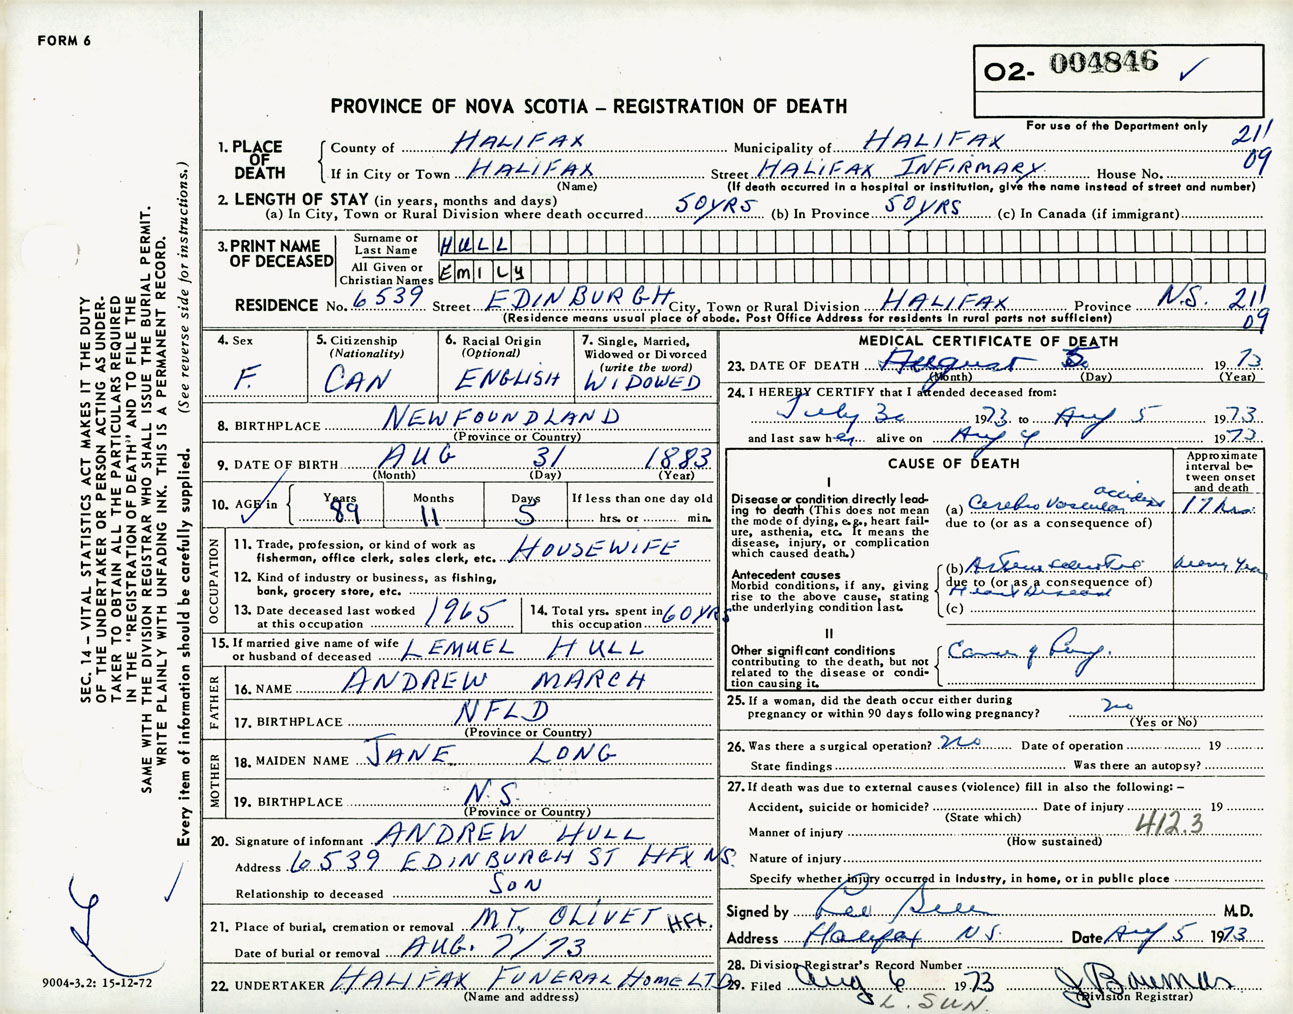 FORM 6
O2- 004846 ✓
PROVINCE OF NOVA SCOTIA – REGISTRATION OF DEATH
For use of the Department only
1. PLACE OF DEATH
County of HALIFAX Municipality of HALIFAX 211
If in City or Town HALIFAX Street HALIFAX INFIRMARY House No. 09
(Name) (If death occurred in a hospital or institution, give the name instead of street and number)
2. LENGTH OF STAY (in years, months and days)
(a) In City, Town or Rural Division where death occurred 50 YRS (b) In Province 50 YRS (c) In Canada (if immigrant)
3. PRINT NAME OF DECEASED
Surname or Last Name HULL
All Given or Christian Names EMILY
RESIDENCE No. 6539 Street EDINBURGH City, Town or Rural Division HALIFAX Province N.S. 211
(Residence means usual place of abode. Post Office Address for residents in rural parts not sufficient) 09
4. Sex F.
5. Citizenship (Nationality) CAN
6. Racial Origin (Optional) ENGLISH
7. Single, Married, Widowed or Divorced (write the word) WIDOWED
8. BIRTHPLACE NEWFOUNDLAND
(Province or Country)
9. DATE OF BIRTH AUG 31 1883
(Month) (Day) (Year)
10. AGE in Years 89 Months 11 Days 5 If less than one day old
hrs. or min.
OCCUPATION
11. Trade, profession, or kind of work as fisherman, office clerk, sales clerk, etc. HOUSEWIFE
12. Kind of industry or business, as fishing, bank, grocery store, etc.
13. Date deceased last worked at this occupation 1965
14. Total yrs. spent in this occupation 60 YRS
15. If married give name of wife or husband of deceased LEMUEL HULL
FATHER
16. NAME ANDREW MARCH
17. BIRTHPLACE NFLD
(Province or Country)
MOTHER
18. MAIDEN NAME JANE LONG
19. BIRTHPLACE N.S.
(Province or Country)
20. Signature of informant ANDREW HULL
Address 6539 EDINBURGH ST HFX NS.
Relationship to deceased SON
21. Place of burial, cremation or removal MT. OLIVET HFX.
Date of burial or removal AUG. 7/73
22. UNDERTAKER HALIFAX FUNERAL HOME LTD
(Name and address)
MEDICAL CERTIFICATE OF DEATH
23. DATE OF DEATH August 5 1973
(Month) (Day) (Year)
24. I HEREBY CERTIFY that I attended deceased from:
July 30 1973 to Aug 5 1973
and last saw her alive on Aug 4 1973
CAUSE OF DEATH
Approximate interval between onset and death
I
Disease or condition directly leading to death (This does not mean the mode of dying, e.g., heart failure, asthenia, etc. It means the disease, injury, or complication which caused death.)
(a) Cerebro vascular accident 17 hrs.
due to (or as a consequence of)
Antecedent causes
Morbid conditions, if any, giving rise to the above cause, stating the underlying condition last.
(b) many years
due to (or as a consequence of)
Heart Disease
(c)
II
Other significant conditions
contributing to the death, but not related to the disease or condition causing it.
25. If a woman, did the death occur either during pregnancy or within 90 days following pregnancy? no
(Yes or No)
26. Was there a surgical operation? no Date of operation 19
State findings Was there an autopsy?
27. If death was due to external causes (violence) fill in also the following: –
Accident, suicide or homicide? Date of injury 19
(State which) 412.3
Manner of injury
(How sustained)
Nature of injury
Specify whether injury occurred in industry, in home, or in public place
Signed by M.D.
Address Halifax N.S. Date Aug 5 1973
28. Division Registrar's Record Number
29. Filed Aug 6 1973
(Division Registrar)
L. SUN.
SEC. 14 – VITAL STATISTICS ACT MAKES IT THE DUTY
OF THE UNDERTAKER OR PERSON ACTING AS UNDER-
TAKER TO OBTAIN ALL THE PARTICULARS REQUIRED
IN THE "REGISTRATION OF DEATH" AND TO FILE THE
SAME WITH THE DIVISION REGISTRAR WHO SHALL ISSUE THE BURIAL PERMIT.
WRITE PLAINLY WITH UNFADING INK. THIS IS A PERMANENT RECORD.
Every item of information should be carefully supplied. (See reverse side for instructions.)
9004-3.2: 15-12-72